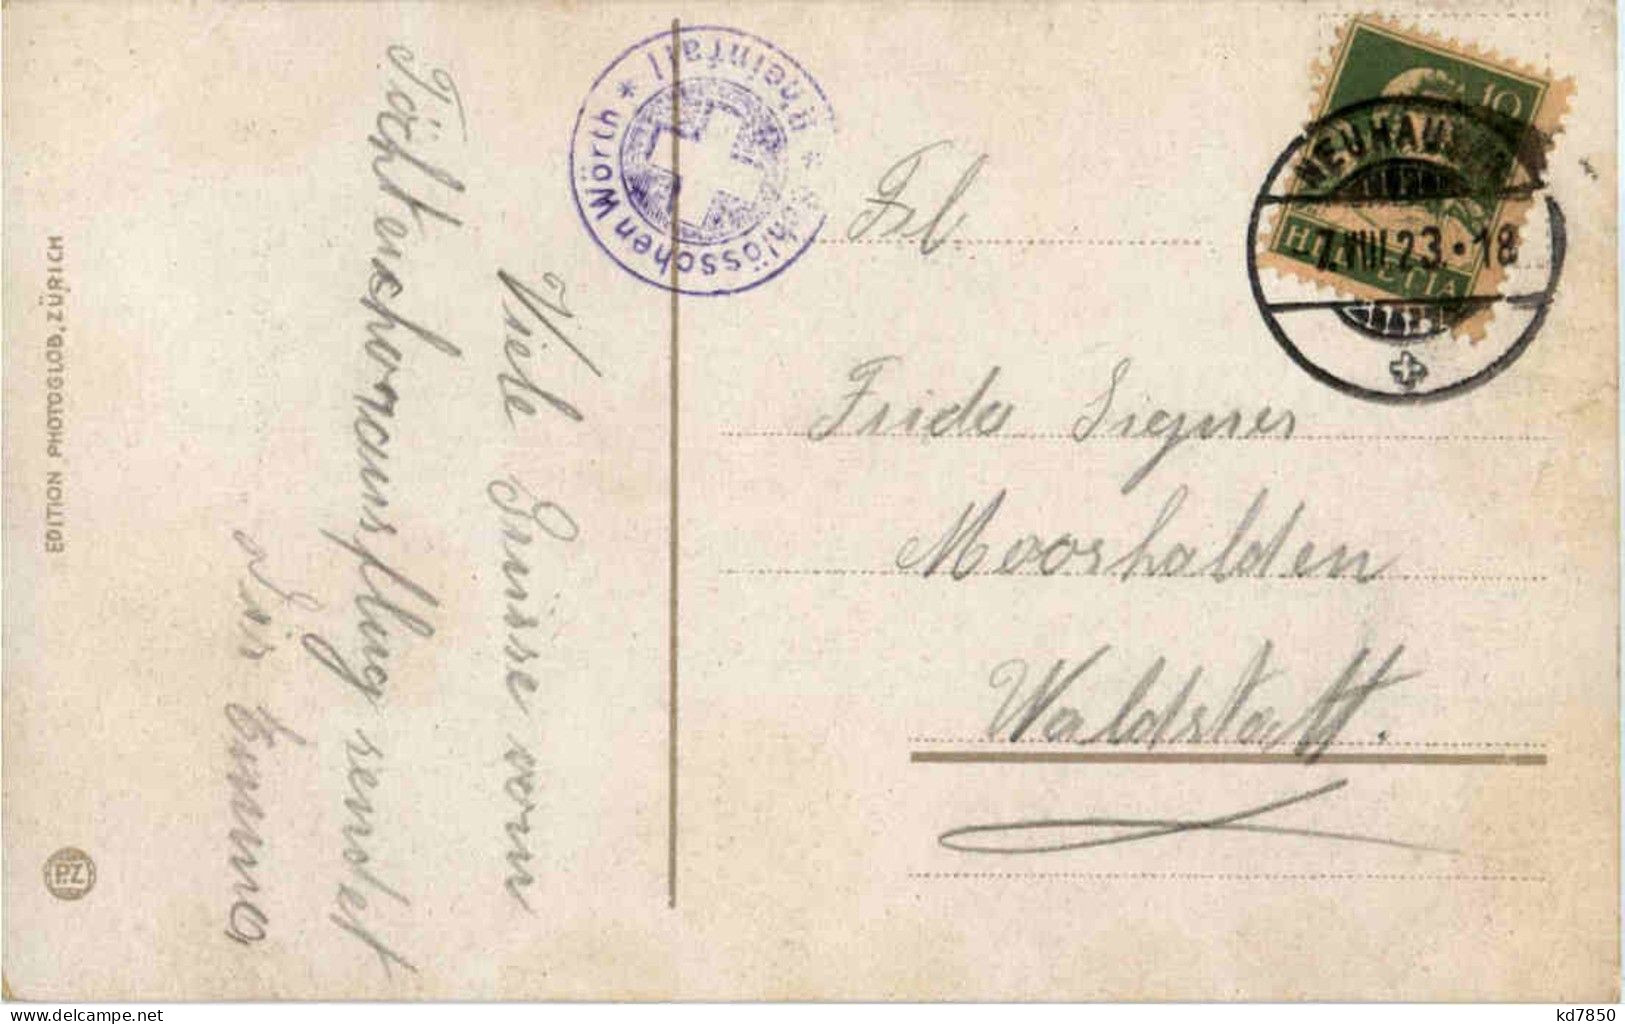 Viele Grüsse vom
Töchternchorausflug sendet
Dir Emma
Schlösschen Wörth * Rheinfall *
10
HELVETIA
NEUHAUSEN
7.VIII.23.18
Frl.
Frida Signer
Moorhalden
Waldstatt.
EDITION PHOTOGLOB, ZÜRICH
P.Z
kd7850